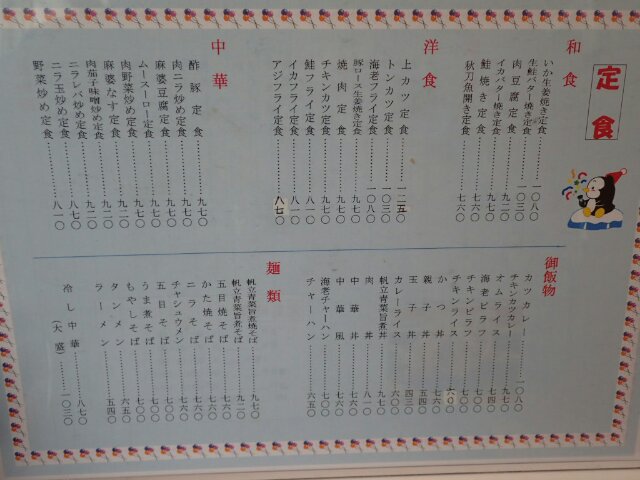 定食
和食
いか生姜焼き定食 一〇八〇
生鮭バター焼き定食 一〇三〇
肉豆腐定食 九二〇
イカバター焼き定食 九七〇
鮭焼き定食 七六〇
秋刀魚開き定食 七六〇
洋食
上カツ定食 一二五〇
トンカツ定食 一〇三〇
海老フライ定食 一〇八〇
豚ロース生姜焼き定食 九七〇
焼肉定食 九七〇
チキンカツ定食 九七〇
鮭フライ定食 八一〇
イカフライ定食 八一〇
アジフライ定食 八七〇
中華
酢豚定食 九七〇
肉ニラ炒め定食 九七〇
麻婆豆腐定食 九七〇
ムースーロー定食 九七〇
肉野菜炒め定食 九七〇
麻婆なす定食 九二〇
肉茄子味噌炒め定食 九二〇
ニラレバ炒め定食 九二〇
ニラ玉炒め定食 八七〇
野菜炒め定食 八一〇
御飯物
カツカレー 一〇八〇
チキンカツカレー 九七〇
オムライス 七四〇
海老ピラフ 七六〇
チキンピラフ 七六〇
チキンライス
かつ丼 七六〇
親子丼 五四〇
玉子丼 四三〇
カレーライス
帆立青菜旨煮丼 九七〇
肉丼 八一〇
中華丼 七六〇
中華風 七六〇
海老チャーハン 七六〇
チャーハン 六五〇
麺類
帆立青菜旨煮焼そば 九七〇
帆立青菜旨煮そば 九二〇
五目焼そば 七六〇
かた焼そば 七六〇
ニラそば 七六〇
チャシュウメン 七六〇
五目そば 七〇〇
うま煮そば 七〇〇
もやしそば 七〇〇
タンメン 六五〇
ラーメン 五四〇
冷し中華 八七〇
(大盛) 一〇三〇